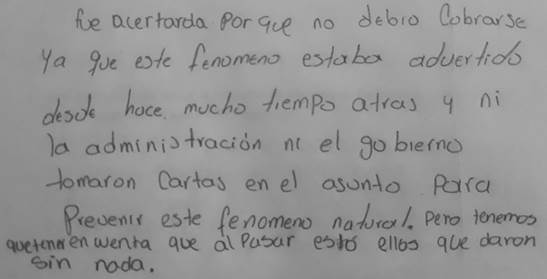 fue acertarda Por que no debio Cobrarse
Ya que este fenomeno estaba advertido
desde hace mucho tiempo atras y ni
la administración ni el gobierno
tomaron Cartas en el asunto Para
Prevenir este fenomeno natural. Pero tenemos
que tener en wenta que al Pasar esto ellos que daron
sin nada.